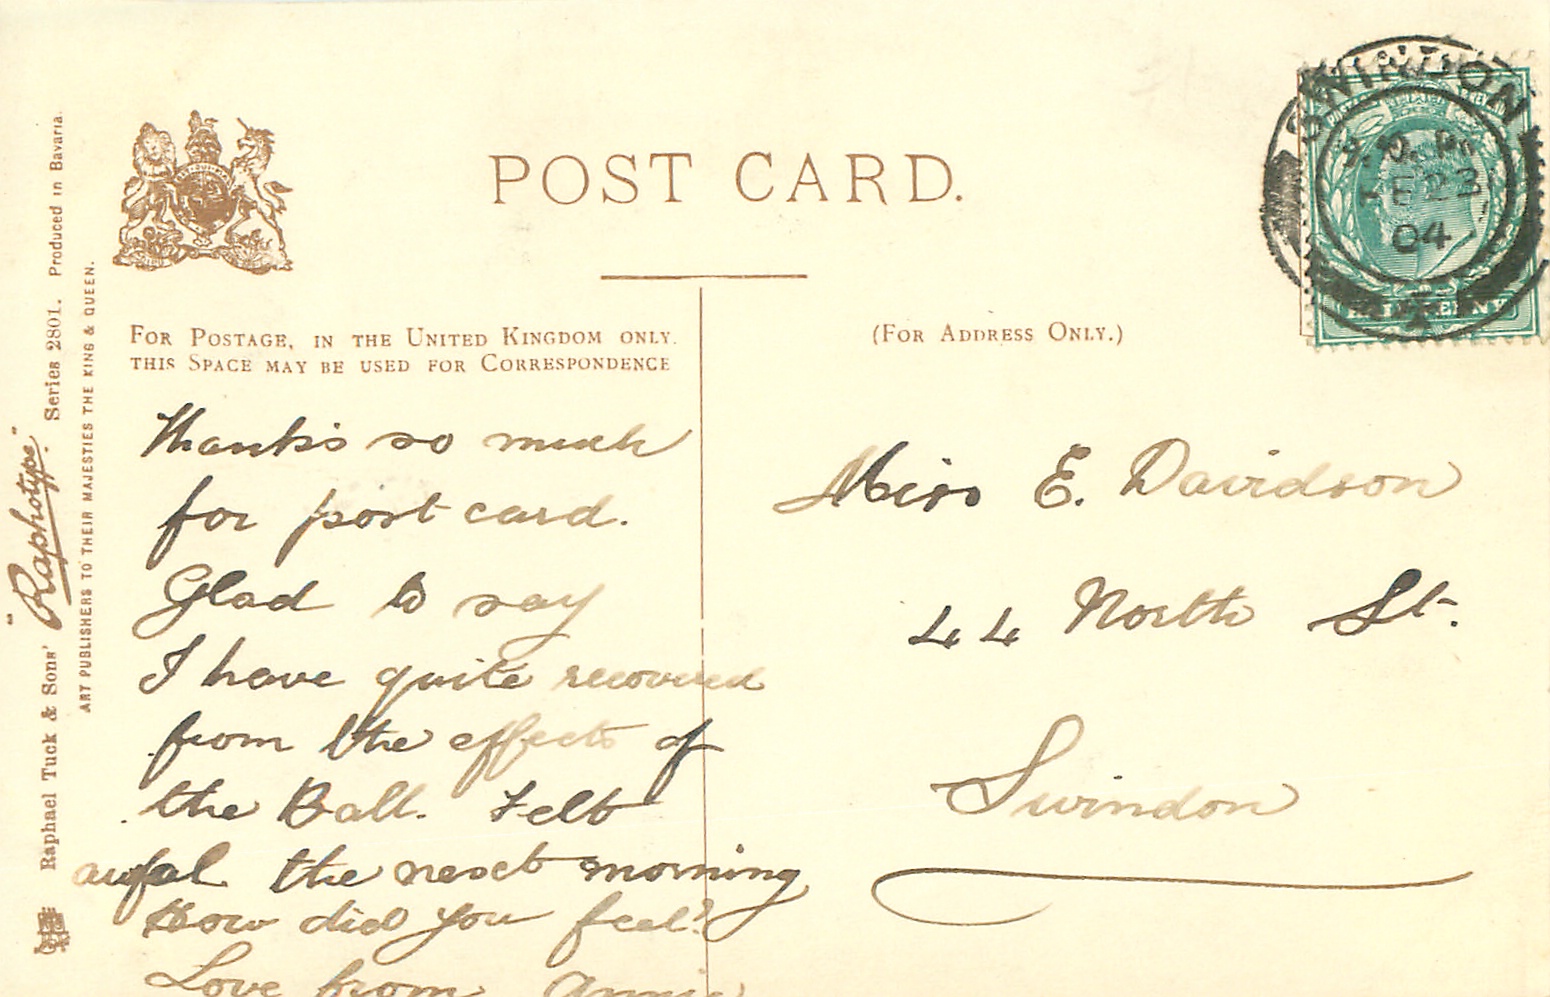 POST CARD.
FOR POSTAGE, IN THE UNITED KINGDOM ONLY.
THIS SPACE MAY BE USED FOR CORRESPONDENCE
(FOR ADDRESS ONLY.)
Thanks so much
for post card.
Glad to say
I have quite recovered
from the effects of
the Ball. Felt
awful the next morning
How did you feel?
Love from Annie
Miss E. Davidson
44 North St.
Swindon
Raphael Tuck & Sons' "Raphotype" Series 2801. Produced in Bavaria.
ART PUBLISHERS TO THEIR MAJESTIES THE KING & QUEEN.
SWINDON
FE 23
04